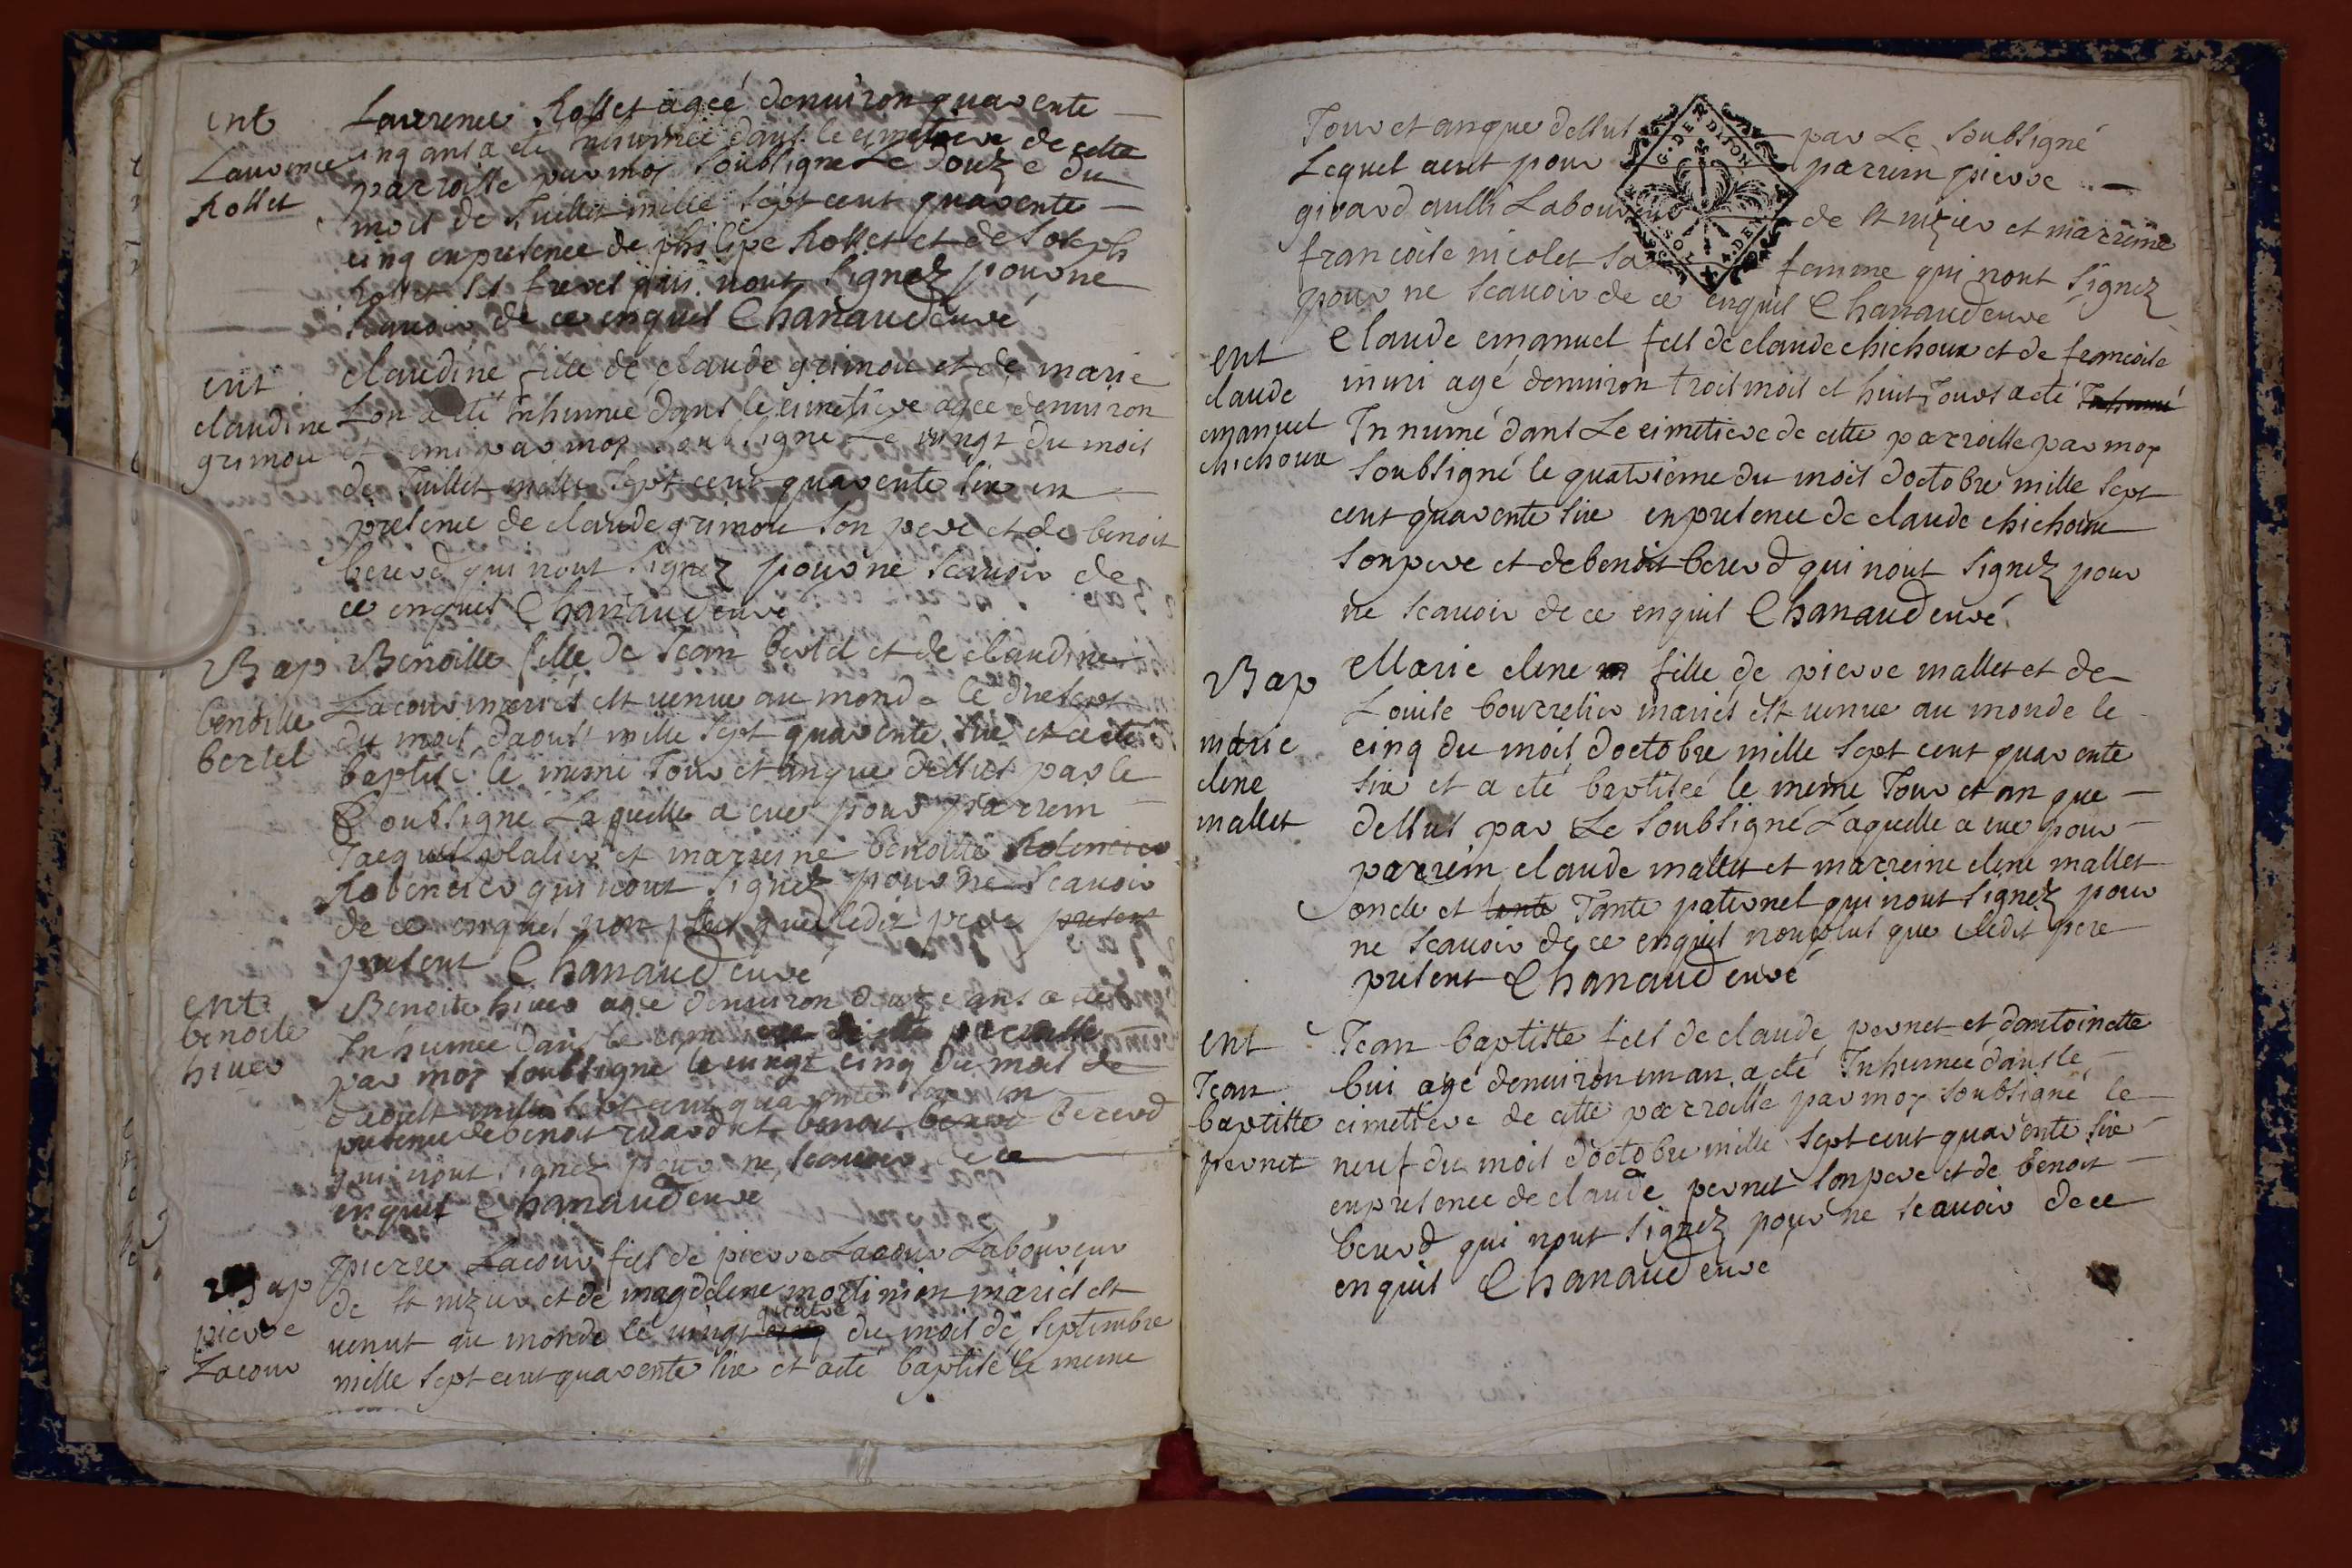 ent
Laurence
Rollet
Laurence Rollet ageé denuiron quarente
cinq ans a eté Inhumeé dans le cimetiere de cette
parroisse par moy soubsigné Le douze du
mois de Juillet mille sept cent quarente
cinq en presence de philipe Rollet et de Joseph
Rollet ses freres qui nont signez pour ne
scauoir de ce enquis Chanaud curé
ent
claudine
grimou
claudine fille de claude grimou et de marie
a eté Inhumeé dans le cimetiere ageé denuiron
et demi par moy soubsigné Le vingt du mois
de Juillet mille sept cent quarente six en
presence de claude grimou son pere et de benoit
bererd qui nont signez pour ne scauoir de
ce enquis Chanaud curé
Bap
benoille
bertel
Benoille fille de Jean bertel et de claudine
Lacour mariés est uenue au monde le dixsept
du mois daoust mille sept quarente six et a eté
baptisé le meme Jour et an que dessus par le
Soubsigné Laquelle a eue pour parrein
Jacques platier et marreine benoille
Robencier qui nont signez pour ne scauoir
de ce enquis non plus que ledit pere present
present Chanaud curé
ent
benoite
hiuer
Benoite hiuer ageé denuiron douze ans a eté
Inhumeé dans le parroisse
par moy soubsigné le uingt cinq du mois de
daoust mille sept cent quarente six en
presence de benoit et benoit berard bererd
qui nont signez pour ne scauoir de ce
enquis Chanaud curé
Bap
pierre
Lacour
pierre Lacour fils de pierre Lacour Laboureur
de st nizier et de magdelene mortinien mariés est
quatre
uenut au monde le uingt cinq du mois de septembre
mille sept cent quarente six et a eté baptisé le meme
Jour et an que dessus par Le soubsigné
Lequel a eut pour parrein pierre
girard aussi Laboureur de st nizier et marreine
francoise nicolet sa femme qui nont signez
pour ne scauoir de ce enquis Chanaud curé
G. DE DIJON
ent
claude
emanuel
chichoux
claude emanuel fils de claude chichoux et de francoise
muri agé denuiron trois mois et huit Jours a eté Inhumé
Inhumé dans Le cimetiere de cette parroisse par moy
soubsigné le quatrieme du mois doctobre mille sept
cent quarente six en presence de claude chichoux
son pere et de benoit bererd qui nont signez pour
ne scauoir de ce enquis Chanaud curé
Bap
marie
elene
mallet
Marie elene fille de pierre mallet et de
Louise bourrelier mariés est uenue au monde le
cinq du mois doctobre mille sept cent quarente
six et a eté baptiseé le meme Jour et an que
dessus par Le soubsigné Laquelle a eue pour
parrein claude mallet et marreine elene mallet
oncle et tente Tante paternel qui nont signez pour
ne scauoir de ce enquis nonplus que Ledit pere
present Chanaud curé
ent
Jean
baptiste
pernet
Jean baptiste fils de claude pernet et dantoinette
bui agé denuiron un an a eté Inhumeé dans le
cimetiere de cette parroisse par moy soubsigné le
neuf du mois doctobre mille sept cent quarente six
en presence de claude pernet son pere et de benoit
bererd qui nont signez pour ne scauoir de ce
enquis Chanaud curé